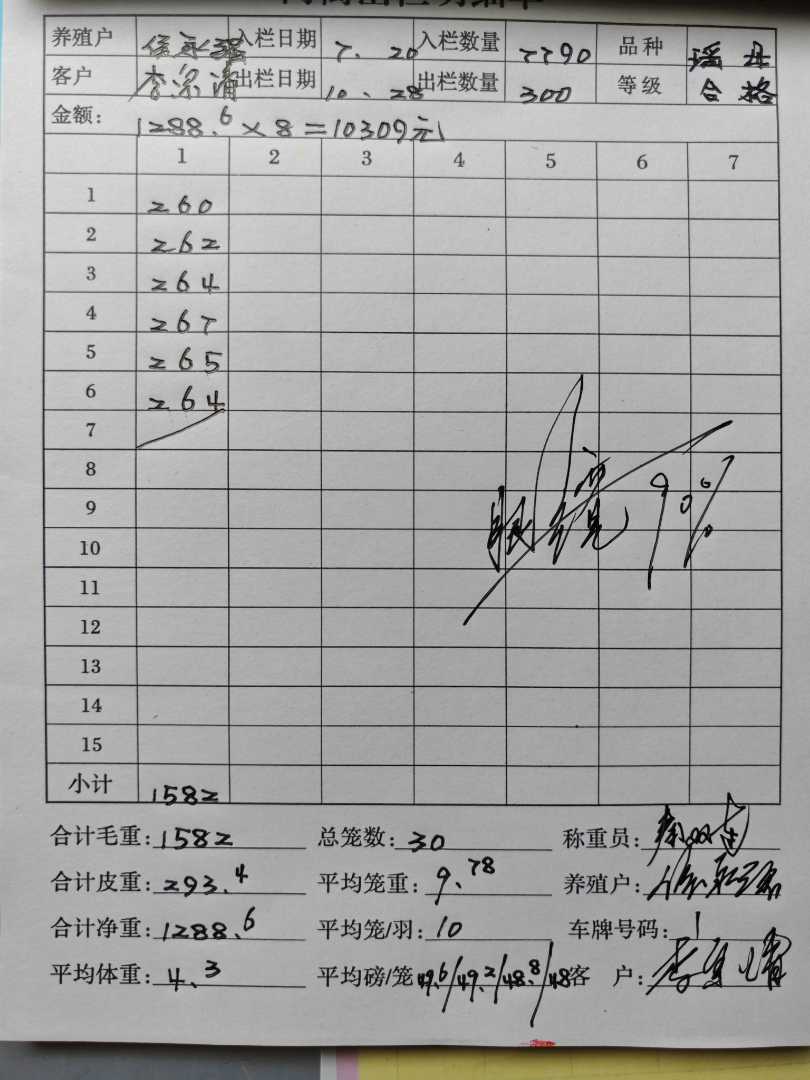 养殖户 入栏日期 7.20 入栏数量 7790 品种 瑶丹
客户 李宗清 出栏日期 10.28 出栏数量 300 等级 合格
金额: 1288.6×8=10309元
1 2 3 4 5 6 7
1 260
2 262
3 264
4 267
5 265
6 264
7
8
9 90%
10
11
12
13
14
15
小计 1582
合计毛重:1582 总笼数:30 称重员:
合计皮重:293.4 平均笼重:9.78 养殖户:
合计净重:1288.6 平均笼/羽:10 车牌号码:1
平均体重:4.3 平均磅/笼 49.6/49.2/48.8/48 客 户: